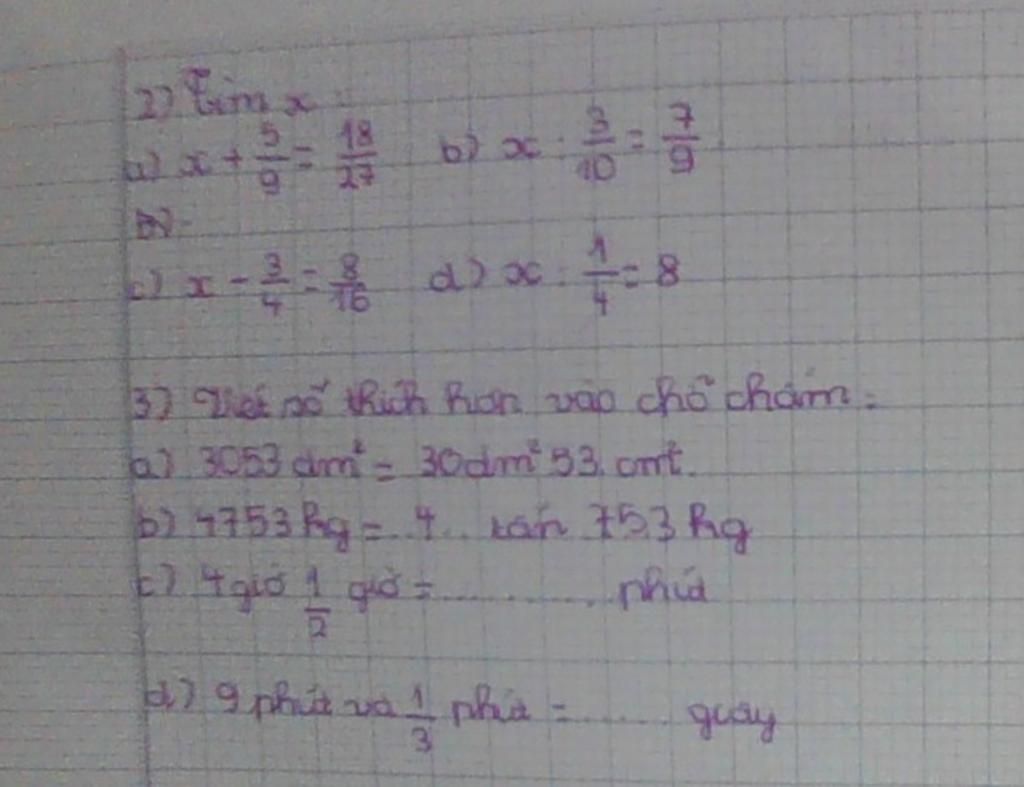 2) Tìm x:
a) x + 5/9 = 18/27 b) x : 3/10 = 7/9
c) x - 3/4 = 8/16 d) x : 1/4 = 8
3) Viết số thích hợp vào chỗ chấm:
a) 3053 dm² = 30dm² 53 cm².
b) 4753 kg = ..4.. tấn 753 kg
c) 4 giờ 1/2 giờ = ............ phút
d) 9 phút và 1/3 phút = ....... giây